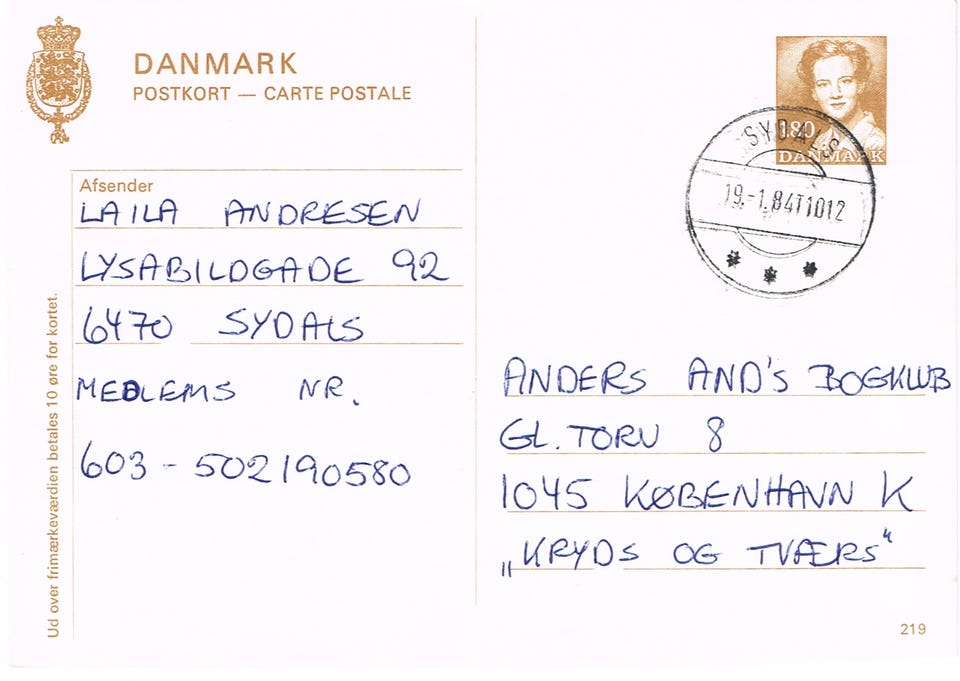 DANMARK
POSTKORT — CARTE POSTALE
180
DANMARK
SYDALS
19.-1.84T1012
Afsender
LAILA ANDRESEN
LYSABILDGADE 92
6470 SYDALS
MEDLEMS NR.
603-502190580
Ud over frimærkeværdien betales 10 øre for kortet.
ANDERS AND'S BOGKLUB
GL. TORV 8
1045 KØBENHAVN K
„KRYDS OG TVÆRS“
219